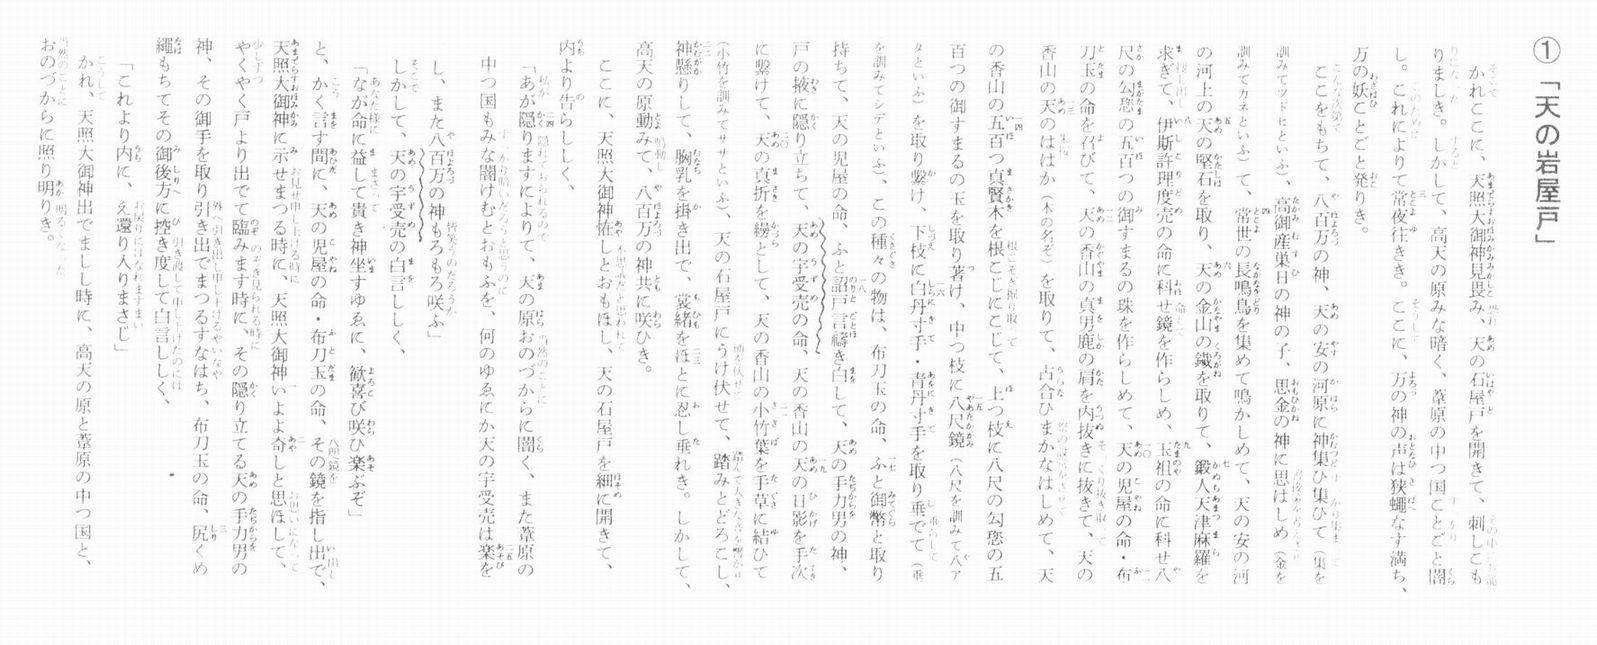 ①「天の岩屋戸」
かれここに、天照大御神見畏み、天の石屋戸を開きて、刺しこも
りましき。しかして、高天の原みな暗く、葦原の中つ国ことごと闇
し。これによりて常夜往きき。ここに、万の神の声は狭蠅なす満ち、
万の妖ことごと発りき。
ここをもちて、八百万の神、天の安の河原に神集ひ集ひて（集を
訓みてツドヒといふ）、高御産巣日の神の子、思金の神に思はしめ（金を
訓みてカネといふ）て、常世の長鳴鳥を集めて鳴かしめて、天の安の河
の河上の天の堅石を取り、天の金山の鐵を取りて、鍛人天津麻羅を
求ぎて、伊斯許理度売の命に科せ鏡を作らしめ、玉祖の命に科せ八
尺の勾璁の五百つの御すまるの珠を作らしめて、天の児屋の命・布
刀玉の命を召びて、天の香山の真男鹿の肩を内抜きに抜きて、天の
香山の天のははか（木の名ぞ）を取りて、占合ひまかなはしめて、天
の香山の五百つ真賢木を根こじにこじて、上つ枝に八尺の勾璁の五
百つの御すまるの玉を取り著け、中つ枝に八尺鏡（八尺を訓みて八ア
タといふ）を取り繋け、下枝に白丹寸手・青丹寸手を取り垂でて（垂
を訓みてシデといふ）、この種々の物は、布刀玉の命、ふと御幣と取り
持ちて、天の児屋の命、ふと詔戸言禱き白して、天の手力男の神、
戸の掖に隠り立ちて、天の宇受売の命、天の香山の天の日影を手次
に繋けて、天の真折を縵として、天の香山の小竹葉を手草に結ひて
（小竹を訓みてササといふ）、天の石屋戸にうけ伏せて、踏みとどろこし、
神懸りして、胸乳を掛き出で、裳緒をほとに忍し垂れき。しかして、
高天の原動みて、八百万の神共に咲ひき。
ここに、天照大御神恠しとおもほし、天の石屋戸を細に開きて、
内より告らししく、
「あが隠りますによりて、天の原おのづからに闇く、また葦原の
中つ国もみな闇けむとおもふを、何のゆゑにか天の宇受売は楽を
し、また八百万の神もろもろ咲ふ」
しかして、天の宇受売の白言ししく、
「なが命に益して貴き神坐すゆゑに、歓喜び咲ひ楽ぶぞ」
と、かく言す間に、天の児屋の命・布刀玉の命、その鏡を指し出で、
天照大御神に示せまつる時に、天照大御神いよよ奇しと思ほして、
やくやく戸より出でて臨みます時に、その隠り立てる天の手力男の
神、その御手を取り引き出でまつるすなはち、布刀玉の命、尻くめ
繩もちてその御後方に控き度して白言ししく、
「これより内に、え還り入りまさじ」
かれ、天照大御神出でましし時に、高天の原と葦原の中つ国と、
おのづからに照り明りき。